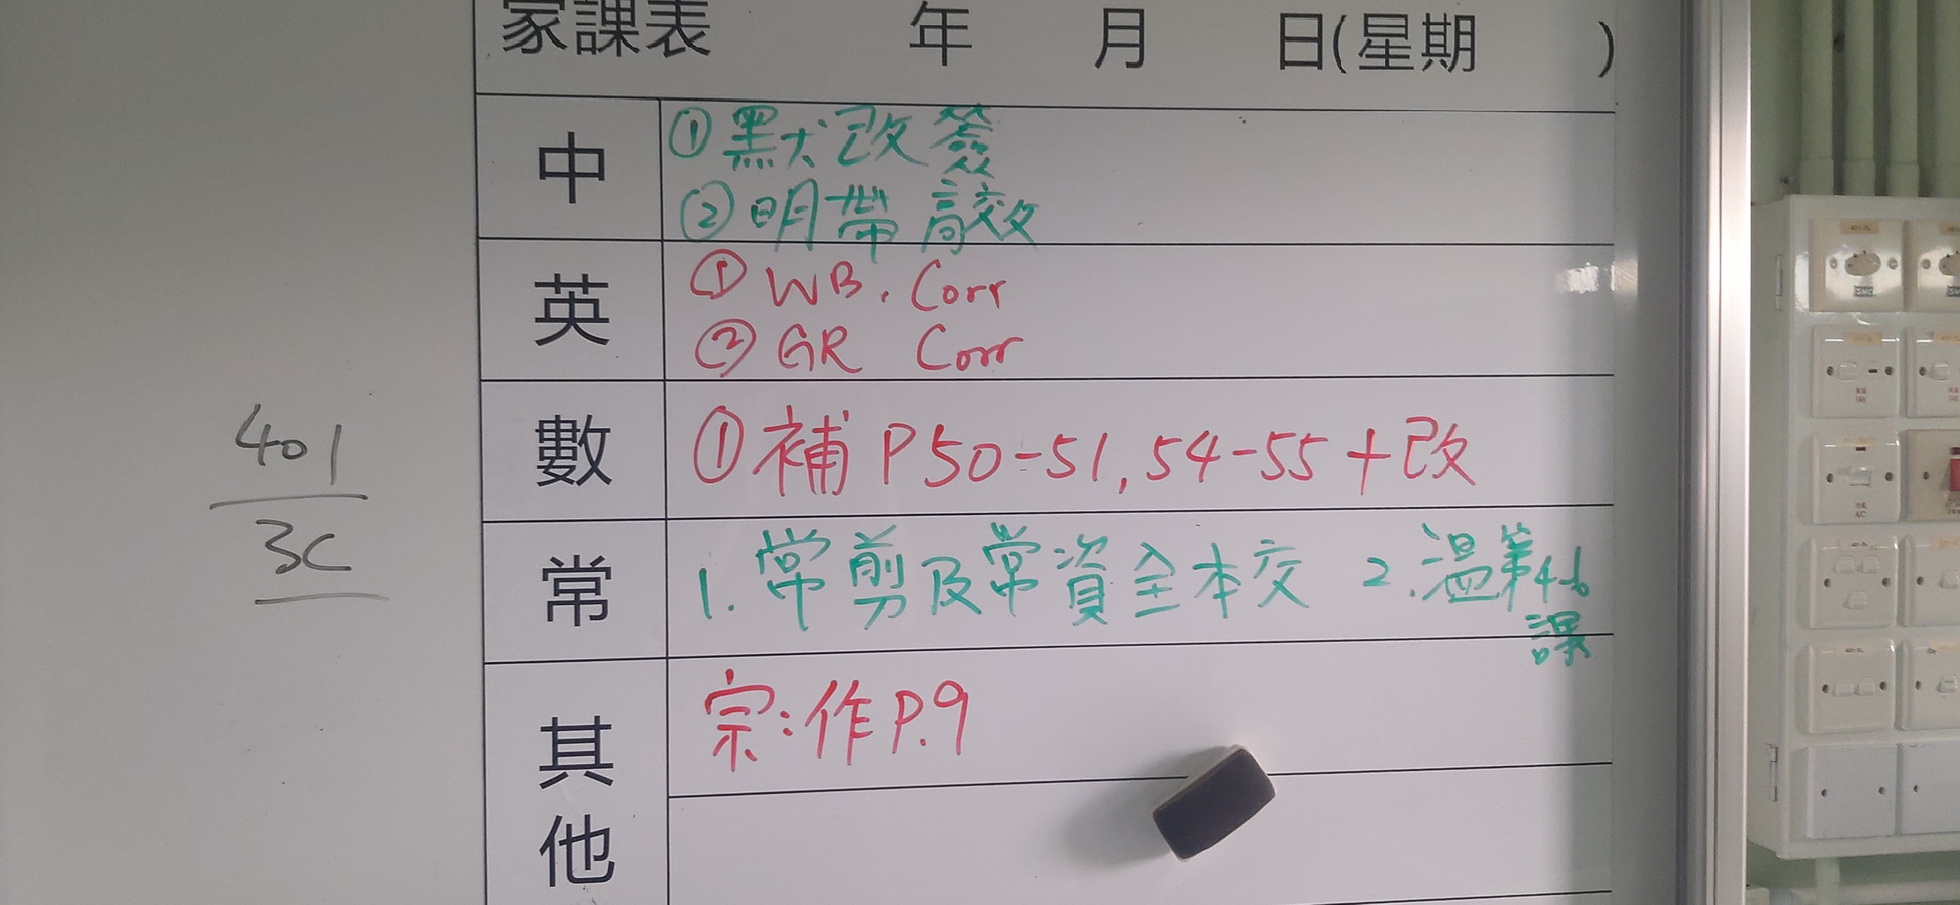 家課表 年 月 日(星期 )
中
① 默改簽
② 明帶高效
英
① WB. Corr
② GR Corr
數
① 補 P50-51, 54-55 + 改
常
1. 常剪及常資全本交 2. 溫第4-6
課
其他
宗: 作 P.9
401
3C